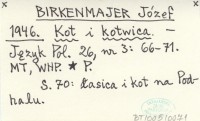 BIRKENMAJER Józef
1946. Kot i kotwica. –
Język Pol. 26, nr 3: 66-71.
MT, WHP. ★ P.
S. 70: łasica i kot na Pod-
halu.